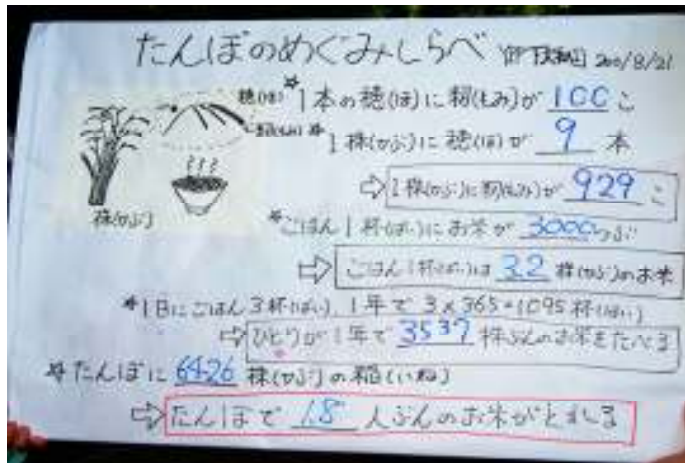 たんぼのめぐみしらべ 2001/8/21
穂(ほ) *1本の穂(ほ)に籾(もみ)が 100 こ
籾(もみ) *1株(かぶ)に穂(ほ)が 9 本
株(かぶ)
⇨1株(かぶ)に籾(もみ)が 929 こ
*ごはん1杯(ぱい)にお米が 3000 つぶ
⇨ごはん1杯(ぱい)は 3.2 株(かぶ)のお米
*1日にごはん3杯(ばい)、1年で3×365=1095杯(はい)
⇨ひとりが1年で 3537 株ぶんのお米をたべる
*たんぼに 6426 株(かぶ)の稲(いね)
⇨たんぼで 1.8 人ぶんのお米がとれる